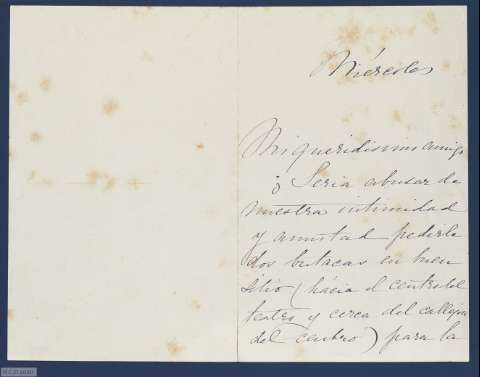 Miércoles
Mi queridisimo amigo
¿ Seria abusar de
nuestra intimidad
y amistad pedirle
dos butacas en buen
sitio (hácia el centro del
teatro y cerca del callejon
del centro) para la